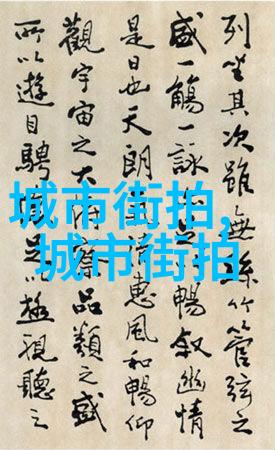 列坐其次雖無絲竹管弦之
盛一觴一詠足暢敘幽情
是日也天朗清惠風和暢仰
觀宇宙之大俯察品類之盛
所以遊目騁足以極視聽之
城市街拍,
城市街拍